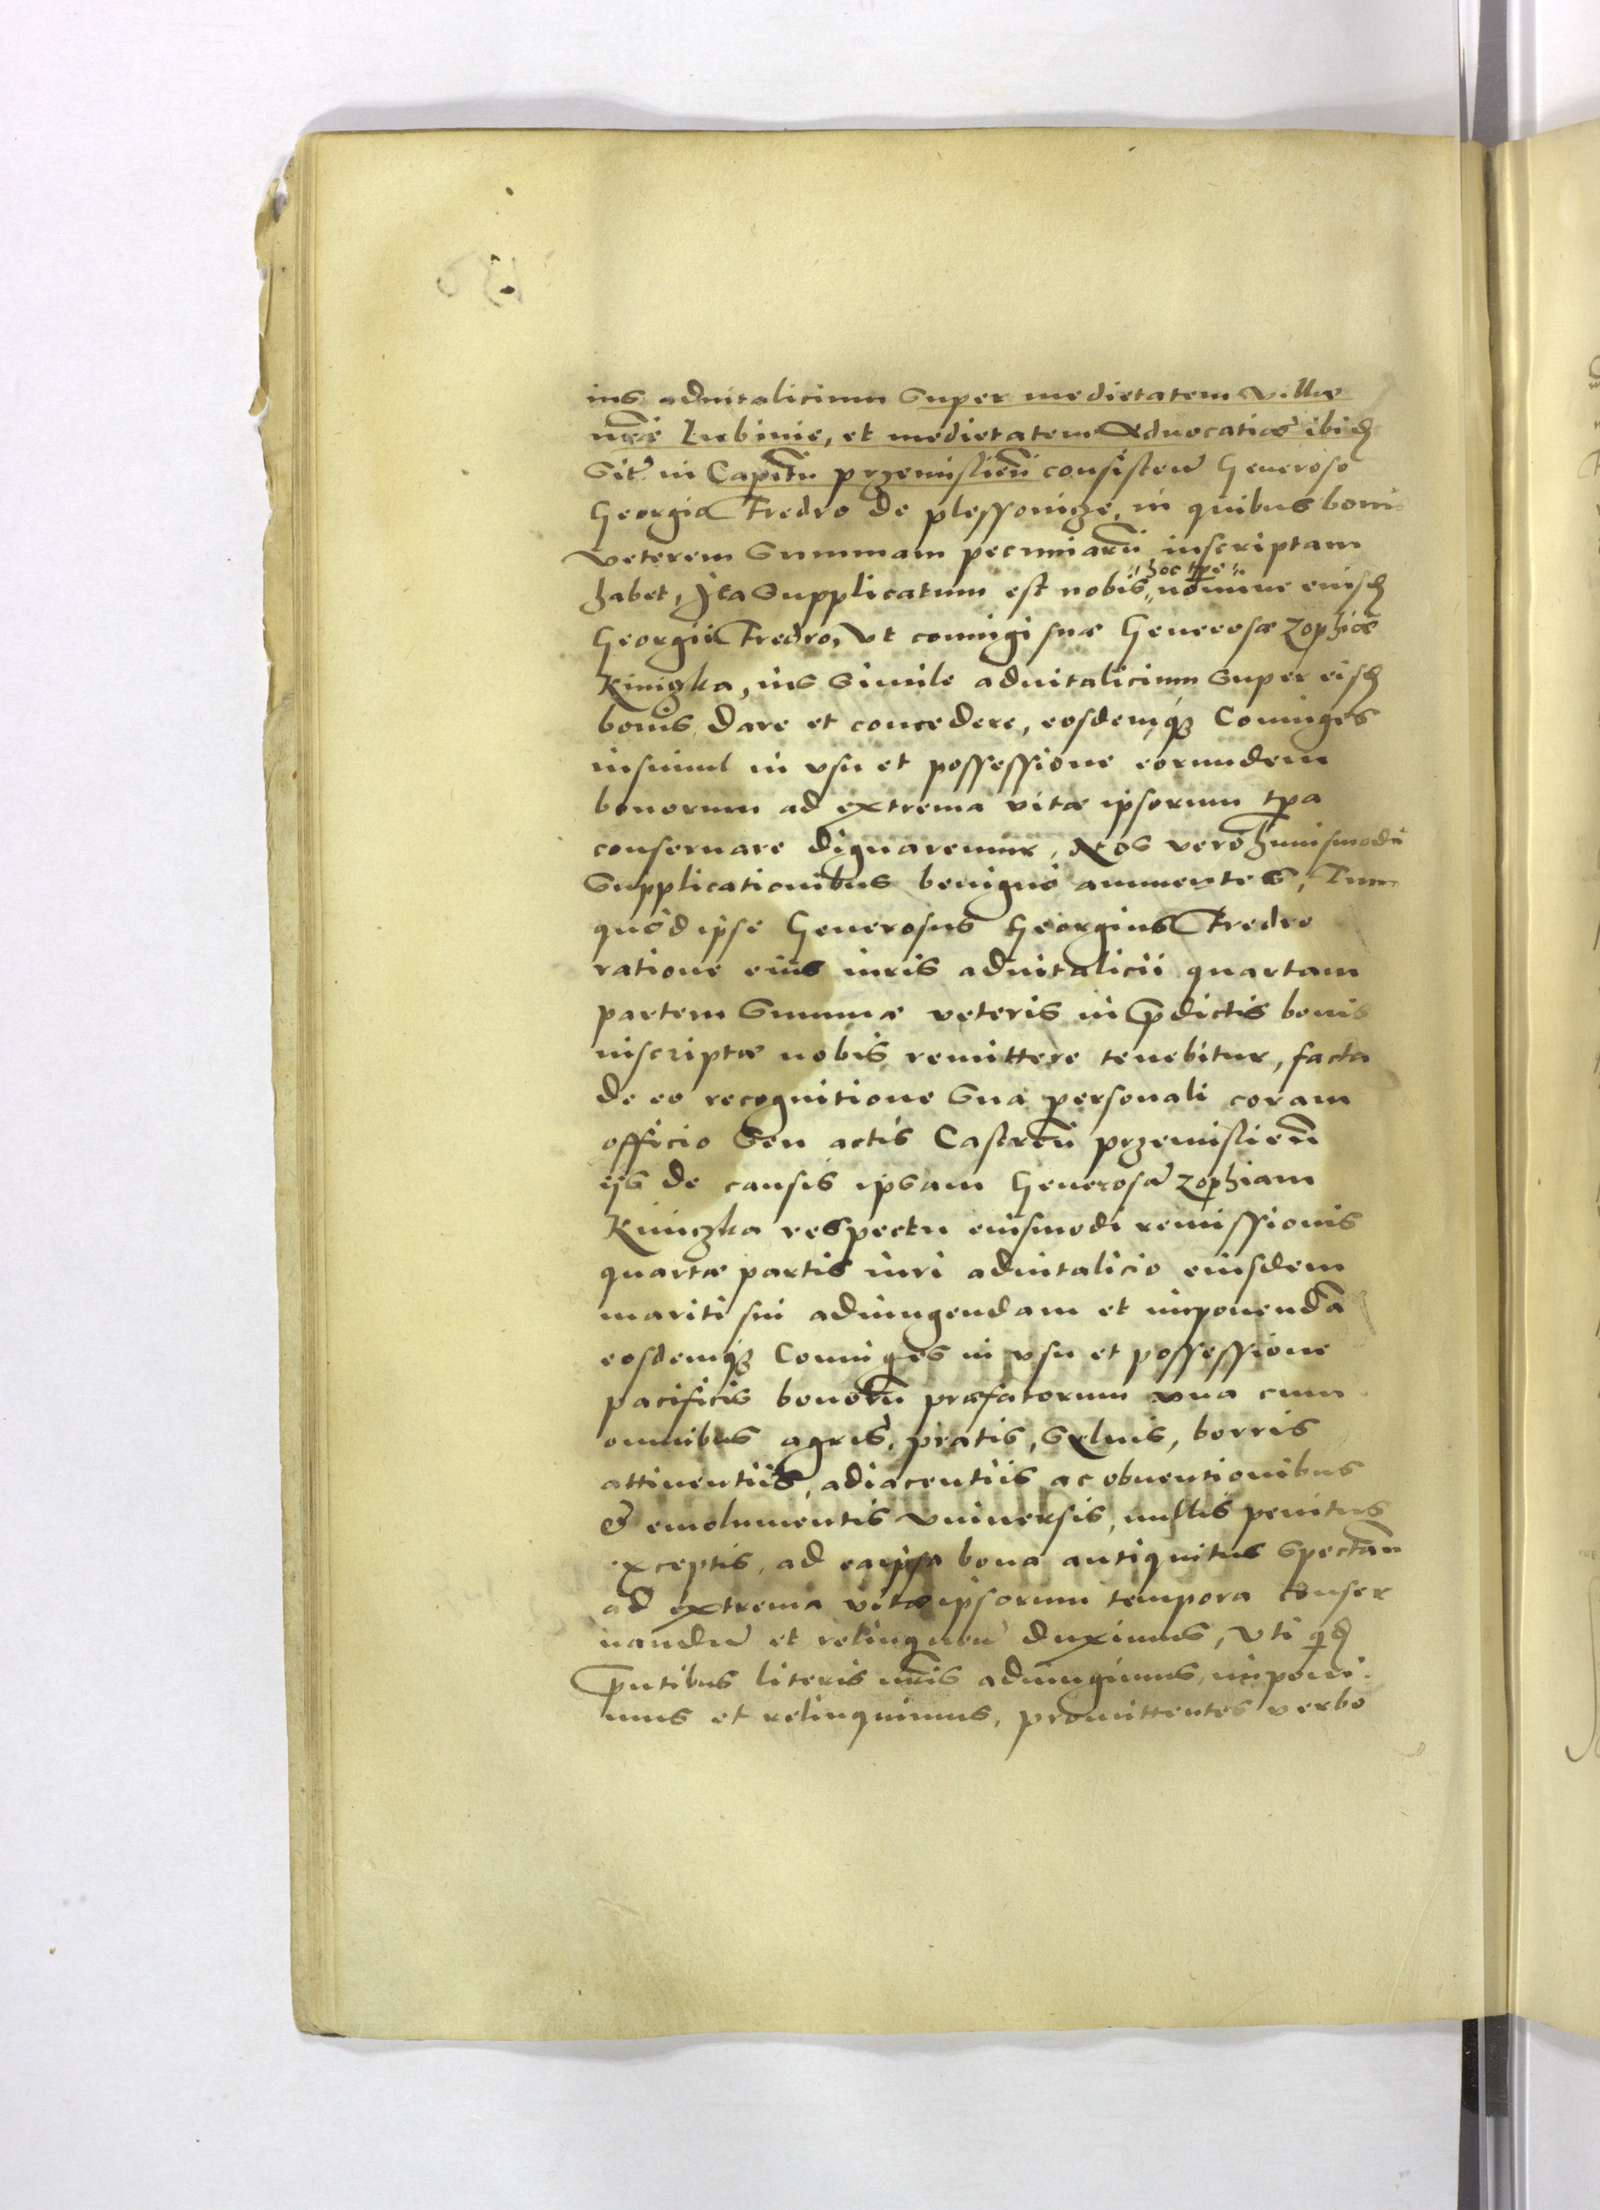 ius aduitalicium Super medietatem villae
nrae Lubinie, et medietatem Aduocatiae ibid
Sit in Capitn przemislien consisten Generoso
Georgio Fredro de plessouicze, in quibus bonis
veterem Summam pecuniaru inscriptam
habet, Ita Supplicatum est nobis "hoc tpe" nomine eiusd
Georgii Fredro, Vt coniugi suae Generosae Zophiae
Kmiczka, ius Simile aduitalicium super eisd
bonis dare et concedere, eosdemq Coniuges
insimul in vsu et possessione eorundem
bonorum ad extrema vitae ipsorum tpa
conseruare dignaremur, Nos vero huiusmodi
Supplicationibus benigne annuentes, Tum
quod ipse Generosus Georgius Fredro
ratione eius iuris aduitalicii quartam
partem Summae veteris in pdictis bonis
inscriptae nobis remittere tenebitur, facta
de eo recognitione Sua personali coram
officio Seu actis Castren przemislien
ijs de causis ipsam Generosa Zophiam
Kmiczka respectu eiusmodi remissionis
quartae partis iuri aduitalicio eiusdem
mariti sui adiungendam et imponenda
eosdemq Coniuges in vsu et possessione
pacificis bonoru praefatorum vna cum
omnibus agris, pratis, Syluis, borris
attinentiis, adiacentiis ac obuentionibus
& emolumentis vniuersis, nullis penitus
exceptis, ad ea ipsa bona antiquitus Spectan
ad extrema vitae ipsorum tempora conser
uandu et relinquen duximus, Vti qd
pntibus literis nris adiungimus, imponi-
mus et relinquimus, promittentes verbo